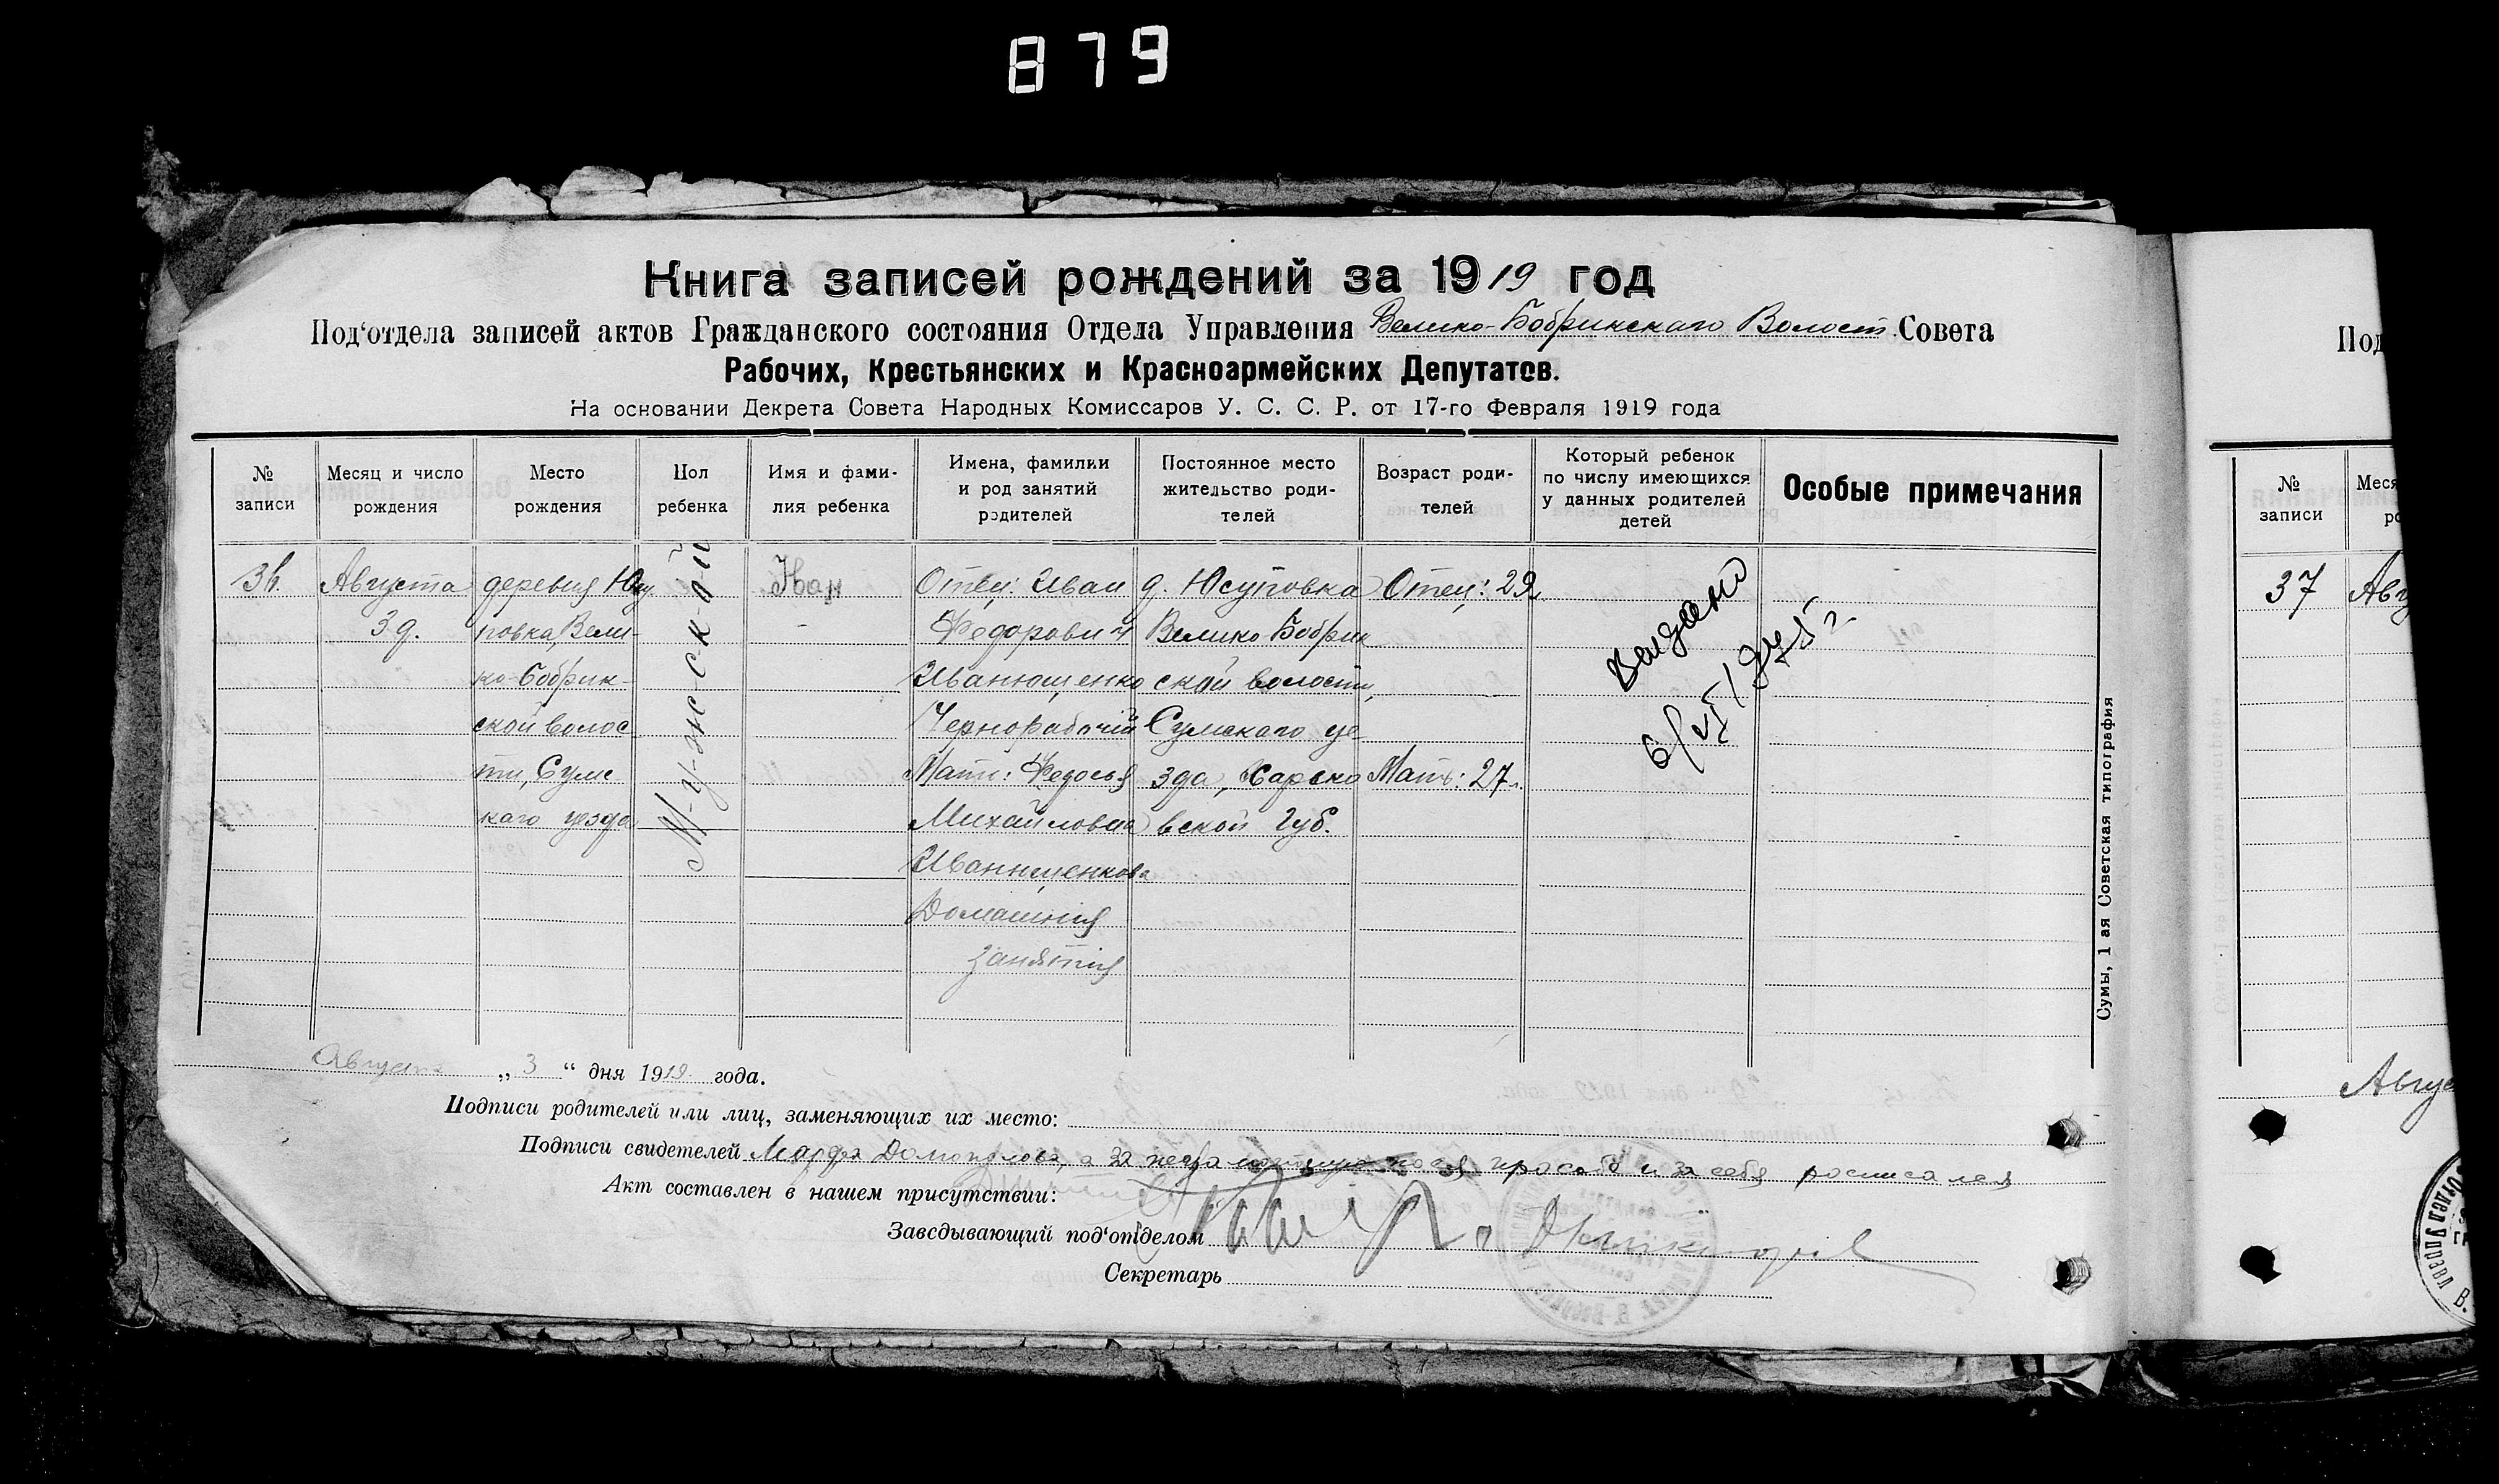 879
Книга записей рождений за 1919 год
Под‘отдела записей актов Гражданского состояния Отдела Управления Велико-Бобрикскаго Волост. Совета
Рабочих, Крестьянских и Красноармейских Депутатов.
На основании Декрета Совета Народных Комиссаров У. С. С. Р. от 17-го Февраля 1919 года
№ записи
Месяц и число рождения
Место рождения
Пол ребенка
Имя и фами-
лия ребенка
Имена, фамилии
и род занятий
родителей
Постоянное место
жительство роди-
телей
Возраст роди-
телей
Который ребенок
по числу имеющихся
у данных родителей
детей
Особые примечания
36.
Августа
3 д.
деревня Юсу
повка, Вели-
ко-Бобрик-
ской волос
ти, Сумс
каго уезда
М-у-ж-с-к-о-й
Іван
Отец: Иван
Федорович
Иванющенко
Чернорабочий
Мать: Федосья
Михайловна
Иванющенкова
Домашния
занятия
д. Юсуповка
Велико Бобрик
ской волости,
Сумскаго уе-
зда, Харько
вской Губ.
Отец: 29.
Мать: 27.
Выдано
6/VI 1975 г
Августа „ 3 “ дня 1919 года.
Подписи родителей или лиц, заменяющих их место:
Подписи свидетелей Марфа а за неграмотную прозьбе и за себя росписался
Акт составлен в нашем присутствии:
Заведывающий под‘отделом
Секретарь
Сумы, 1 ая Советская типография
Под
№
записи
Меся
ро
37
Авгу
Авгус